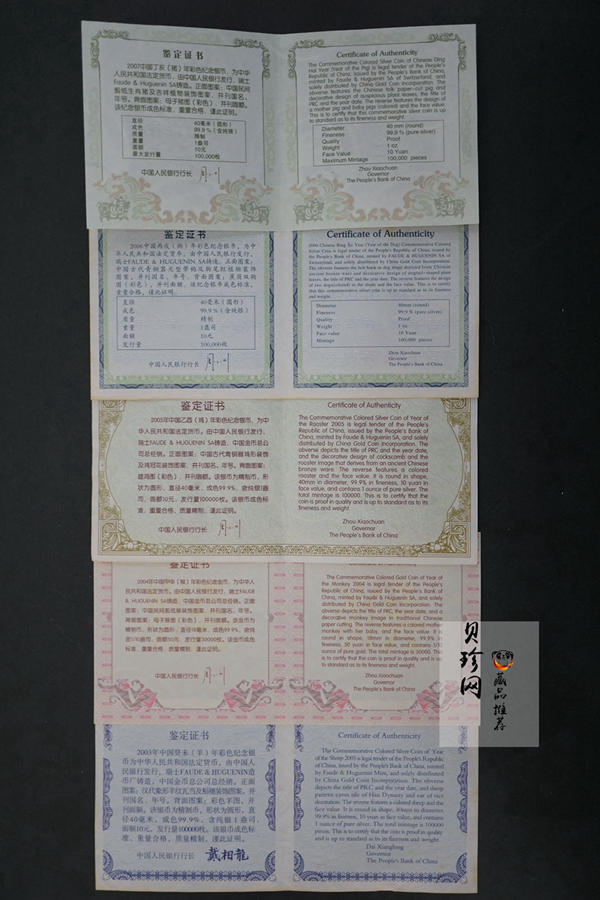 鉴定证书
2007中国丁亥（猪）年彩色纪念银币，为中
华人民共和国法定货币，由中国人民银行发行，瑞士
Faude & HUGUENIN SA铸造。正面图案：中国民间
年号。背面图案：母子猪图（彩色），并刊面额。
该纪念银币成色标准，重量合格，谨此证明。
直径 40毫米（圆形）
成色 99.9%（含纯银）
质量 精制
重量 1盎司
面额 10元
最大发行量 100,000枚
中国人民银行行长
Certificate of Authenticity
The Commemorative Colored Silver Coin of Chinese Ding
Hai Year (Year of the Pig) is legal tender of the People's
Republic of China, issued by the People's Bank of China,
minted by Faude & Huguenin SA of Switzerland, and
solely distributed by China Gold Coin Incorporation. The
obverse features the Chinese folk paper-cut pig and
decorative design of auspicious plant leaves, the title of
PRC and the year date. The reverse features the design of
a mother pig and baby pigs (colored) and the face value.
This is to certify that this commemorative silver coin is up
to standard as to its fineness and weight.
Diameter 40 mm (round)
Fineness 99.9 % (pure silver)
Quality Proof
Weight 1 oz
Face Value 10 Yuan
Maximum Mintage 100,000 pieces
Zhou Xiaochuan
Governor
The People's Bank of China
鉴定证书
2006中国丙戌（狗）年彩色纪念银币，为中
华人民共和国法定货币，由中国人民银行发行，
瑞士FAUDE & HUGUENIN SA铸造，正面图案：
图案，并刊国名、年号，背面图案：
图（彩色），并刊面额，该纪念银币成色标准，
重量合格，谨此证明。
直径 40毫米（圆形）
成色 99.9%（含纯银）
质量 精制
重量 1盎司
面额 10元
发行量 100,000枚
中国人民银行行长
Certificate of Authenticity
2006 Chinese Bing Xu Year (Year of the Dog) Commemorative Colored
Silver Coin is legal tender of the People's Republic of China, issued by
the People's Bank of China, minted by FAUDE & HUGUENIN SA of
Switzerland, and solely distributed by China Gold Coin Incorporation.
Diameter 40mm (round)
Fineness 99.9 % (pure silver)
Quality Proof
Weight 1 oz
Face value 10 Yuan
Mintage 100,000 pieces
Zhou Xiaochuan
Governor
The People's Bank of China
鉴定证书
2005年中国乙酉（鸡）年彩色纪念银币，为中
华人民共和国法定货币。由中国人民银行发行，
瑞士FAUDE & HUGUENIN SA铸造，中国金币总公
司总经销。正面图案：中国古代青铜器鸡形装饰
及鸡冠花装饰图案，并刊国名、年号。背面图案：
雄鸡图（彩色），并刊面额。该银币为精制币，形
状为圆形，直径40毫米，成色99.9%，含纯银1盎
司，面额10元，发行量100000枚。该银币成色标
准，重量合格，质量精制，谨此证明。
中国人民银行行长
Certificate of Authenticity
The Commemorative Colored Silver Coin of Year of
the Rooster 2005 is legal tender of the People's
Republic of China, issued by the People's Bank of
China, minted by Faude & Huguenin SA, and solely
distributed by China Gold Coin Incorporation. The
obverse depicts the title of PRC and the year date,
and the decorative design of cockscomb and the
rooster image that derives from an ancient Chinese
bronze ware. The reverse features a colored
rooster and the face value. It is round in shape,
40mm in diameter, 99.9% in fineness, 10 yuan in face
value, and contains 1 ounce of pure silver. The
total mintage is 100000. This is to certify that the
coin is proof in quality and is up to standard as to its
fineness and weight.
Zhou Xiaochuan
Governor
The People's Bank of China
鉴定证书
2004年中国甲申（猴）年彩色纪念金币，为中华人
民共和国法定货币。由中国人民银行发行，瑞士FAUDE
& HUGUENIN SA铸造，中国金币总公司总经销。正面
背面图案：母子猴图（彩色），并刊面额。该金币为精
制币，形状为圆形，直径18毫米，成色99.9%，含纯
金1/10盎司，面额50元，发行量30000枚。该金币成色
标准，重量合格，质量精制，谨此证明。
中国人民银行行长
Certificate of Authenticity
The Commemorative Colored Gold Coin of Year of
the Monkey 2004 is legal tender of the People's
Republic of China, issued by the People's Bank of
China, minted by Faude & Huguenin SA, and solely
distributed by China Gold Coin Incorporation. The
obverse depicts the title of PRC, the year date, and a
decorative monkey image in traditional Chinese
paper cutting. The reverse features a colored mother
monkey with her baby, and the face value. It is
round in shape, 18mm in diameter, 99.9% in
fineness, 50 yuan in face value, and contains 1/10
ounce of pure gold. The total mintage is 30000. This
is to certify that the coin is proof in quality and is up
to standard as to its fineness and weight.
Zhou Xiaochuan
Governor
The People's Bank of China
贝珍网
藏品推荐
鉴定证书
2003年中国癸未（羊）年彩色纪念银
币为中华人民共和国法定货币，由中国人
民银行发行，瑞士FAUDE & HUGUENIN造
币厂铸造，中国金币总公司总经销。正面
图案：汉代象形羊纹瓦当及稻穗装饰图案，并
刊国名、年号，背面图案：彩色羊图，并
刊面额。该银币为精制币，形状为圆形，直
径40毫米，成色99.9%，含纯银1盎司，
面额10元，发行量100000枚。该银币成色标
准，重量合格，质量精制，谨此证明。
中国人民银行行长 戴相龍
Certificate of Authenticity
The Commemorative Colored Silver Coin of Year
of the Sheep 2003 is legal tender of the People's Republic
of China, issued by the People's Bank of China, minted
by Faude & Huguenin Mint, and solely distributed
by China Gold Coin Incorporation. The obverse
depicts the title of PRC and the year date, and sheep
pattern eaves tile of Han Dynasty and ear of rice
decoration. The reverse features a colored sheep and the
face value. It is round in shape, 40mm in diameter,
99.9% in fineness, 10 yuan in face value, and contains
1 ounce of pure silver. The total mintage is 100000
pieces. This is to certify that the coin is proof in quality
and is up to standard as to its fineness and weight.
Dai Xianglong
Governor
The People's Bank of China